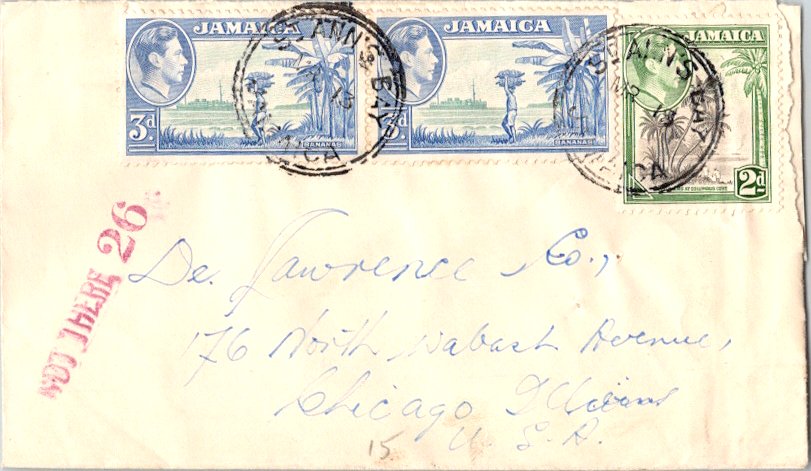 JAMAICA
3d
BANANAS
JAMAICA
3d
BANANAS
JAMAICA
AT COLUMBUS COVE
2d
ST. ANN'S BAY
JAMAICA
ST. ANN'S BAY
JAMAICA
NOT THERE 26
De Lawrence Co.,
176 North Wabash Avenue,
Chicago Illinois
U. S. A.
15